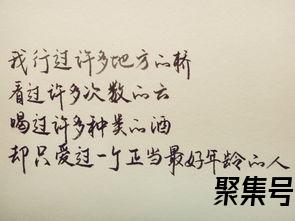 我行过许多地方的桥
看过许多次数的云
喝过许多种类的酒
却只爱过一个正当最好年龄的人
聚集号